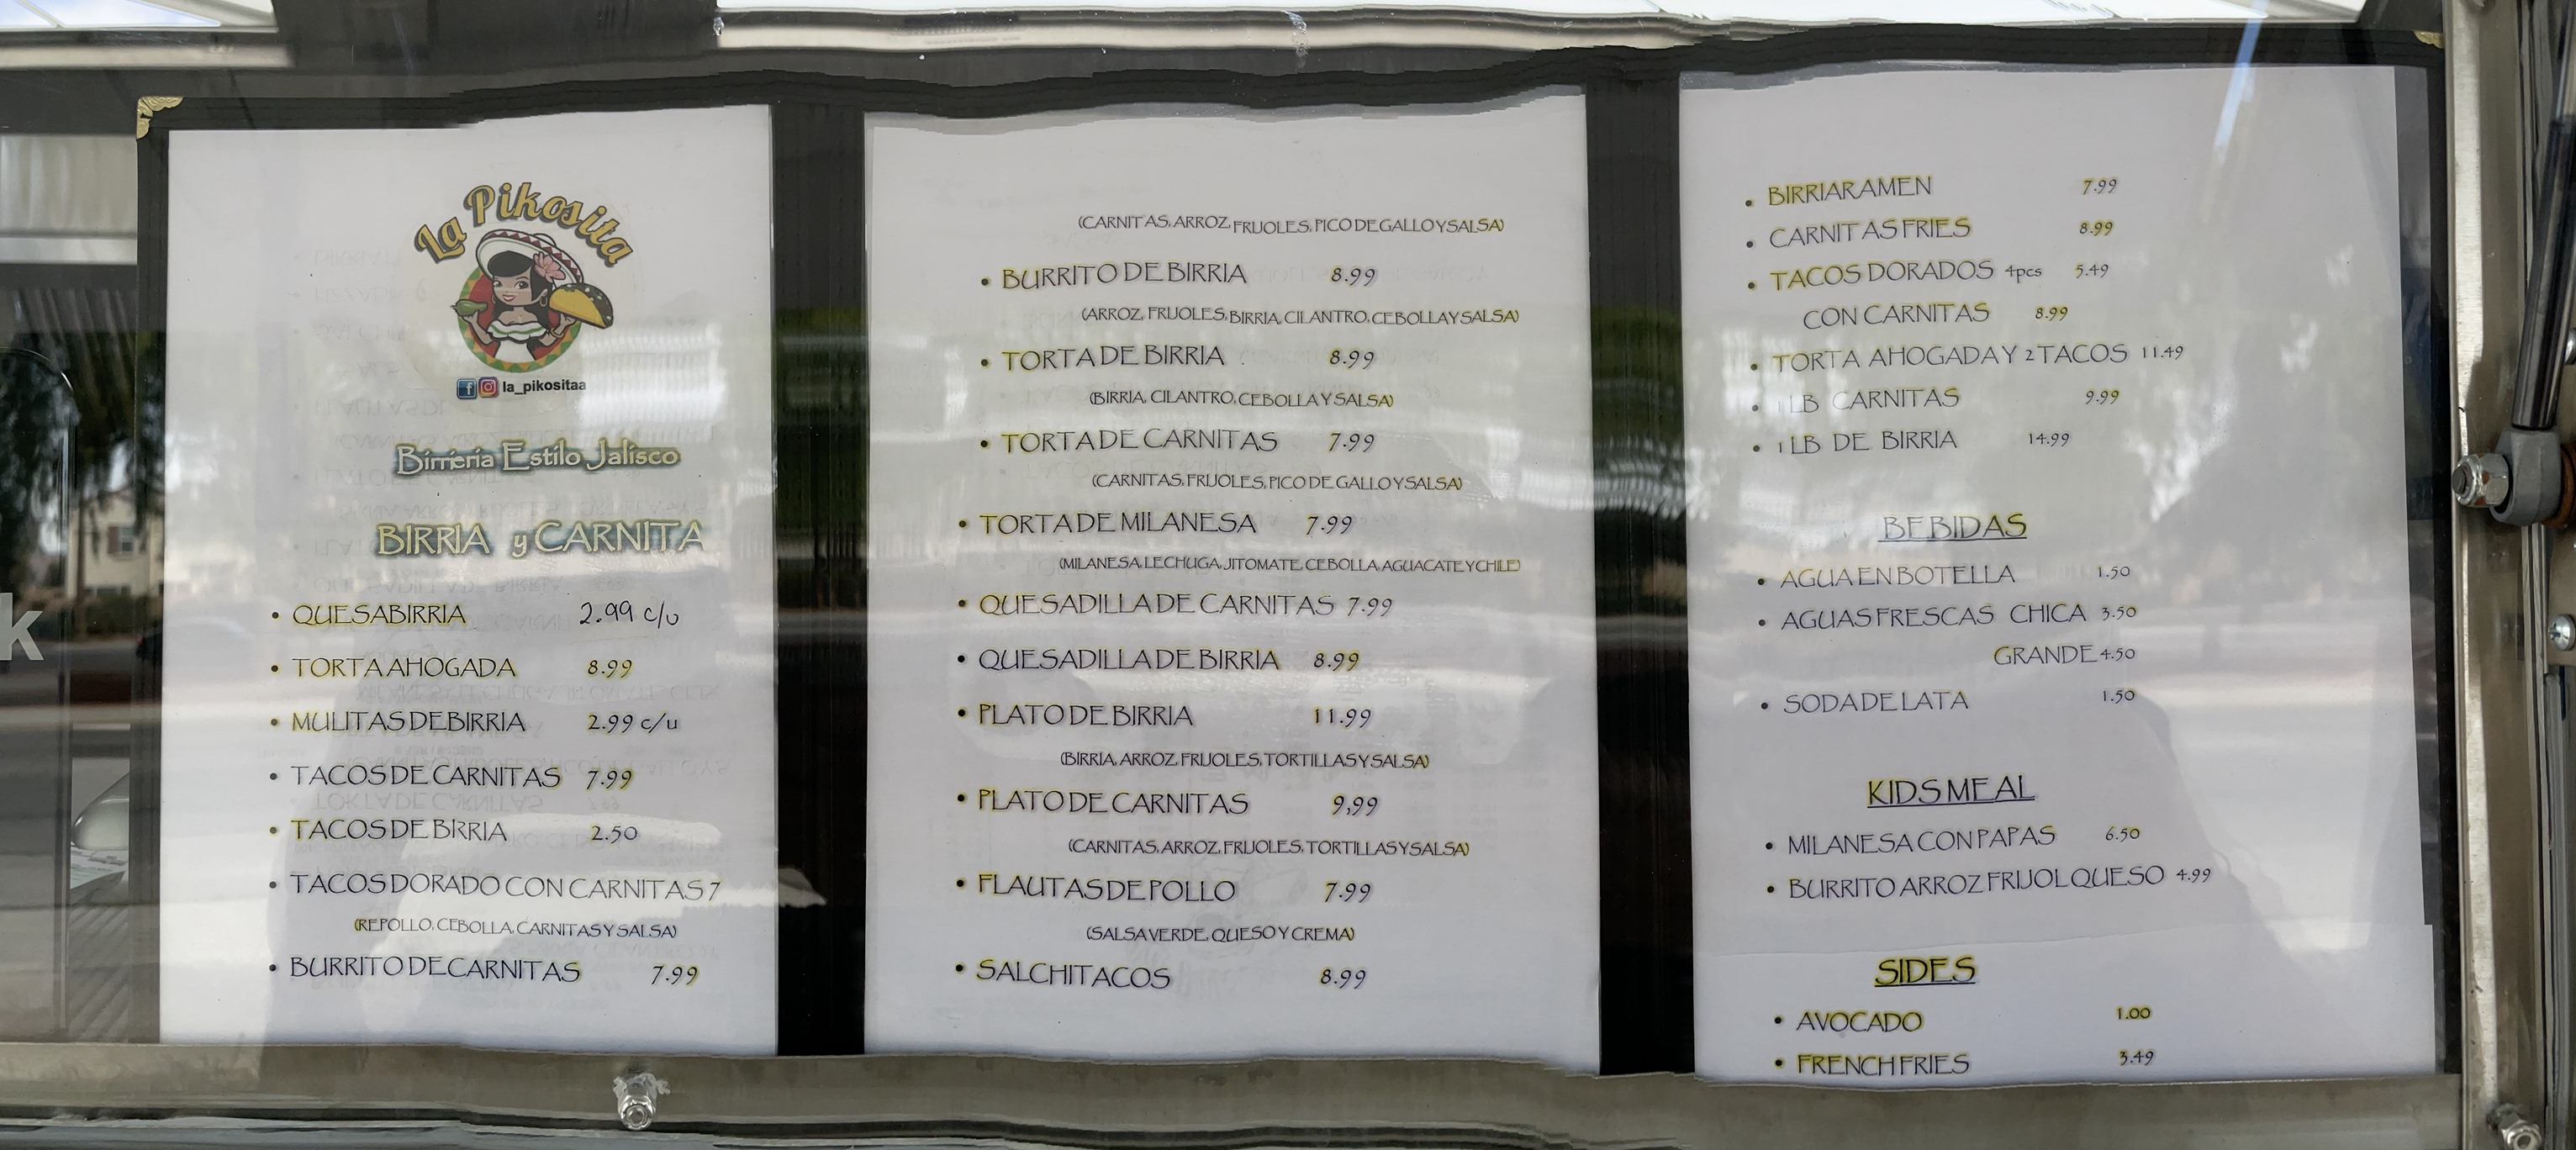 La Pikosita
la_pikositaa
Birrieria Estilo Jalisco
BIRRIA y CARNITA
• QUESABIRRIA 2.99 c/u
• TORTA AHOGADA 8.99
• MULITAS DE BIRRIA 2.99 c/u
• TACOS DE CARNITAS 7.99
• TACOS DE BIRRIA 2.50
• TACOS DORADO CON CARNITAS 7
(REPOLLO, CEBOLLA, CARNITAS Y SALSA)
• BURRITO DE CARNITAS 7.99
(CARNITAS, ARROZ, FRIJOLES, PICO DE GALLO Y SALSA)
• BURRITO DE BIRRIA 8.99
(ARROZ, FRIJOLES, BIRRIA, CILANTRO, CEBOLLA Y SALSA)
• TORTA DE BIRRIA 8.99
(BIRRIA, CILANTRO, CEBOLLA Y SALSA)
• TORTA DE CARNITAS 7.99
(CARNITAS, FRIJOLES, PICO DE GALLO Y SALSA)
• TORTA DE MILANESA 7.99
(MILANESA, LECHUGA, JITOMATE, CEBOLLA, AGUACATE Y CHILE)
• QUESADILLA DE CARNITAS 7.99
• QUESADILLA DE BIRRIA 8.99
• PLATO DE BIRRIA 11.99
(BIRRIA, ARROZ, FRIJOLES, TORTILLAS Y SALSA)
• PLATO DE CARNITAS 9,99
(CARNITAS, ARROZ, FRIJOLES, TORTILLAS Y SALSA)
• FLAUTAS DE POLLO 7.99
(SALSA VERDE, QUESO Y CREMA)
• SALCHITACOS 8.99
• BIRRIARAMEN 7.99
• CARNITAS FRIES 8.99
• TACOS DORADOS 4pcs 5.49
CON CARNITAS 8.99
• TORTA AHOGADA Y 2 TACOS 11.49
• 1 LB CARNITAS 9.99
• 1 LB DE BIRRIA 14.99
BEBIDAS
• AGUA EN BOTELLA 1.50
• AGUAS FRESCAS CHICA 3.50
GRANDE 4.50
• SODA DE LATA 1.50
KIDS MEAL
• MILANESA CON PAPAS 6.50
• BURRITO ARROZ FRIJOL QUESO 4.99
SIDES
• AVOCADO 1.00
• FRENCH FRIES 3.49
k